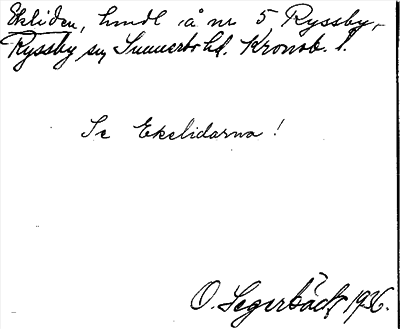 Ekliden, hmdl å nr 5 Ryssby,
Ryssby sn, Sunnerbo hd. Kronob. l.
Se Ekelidarna!
O. Segerbäck, 1936.